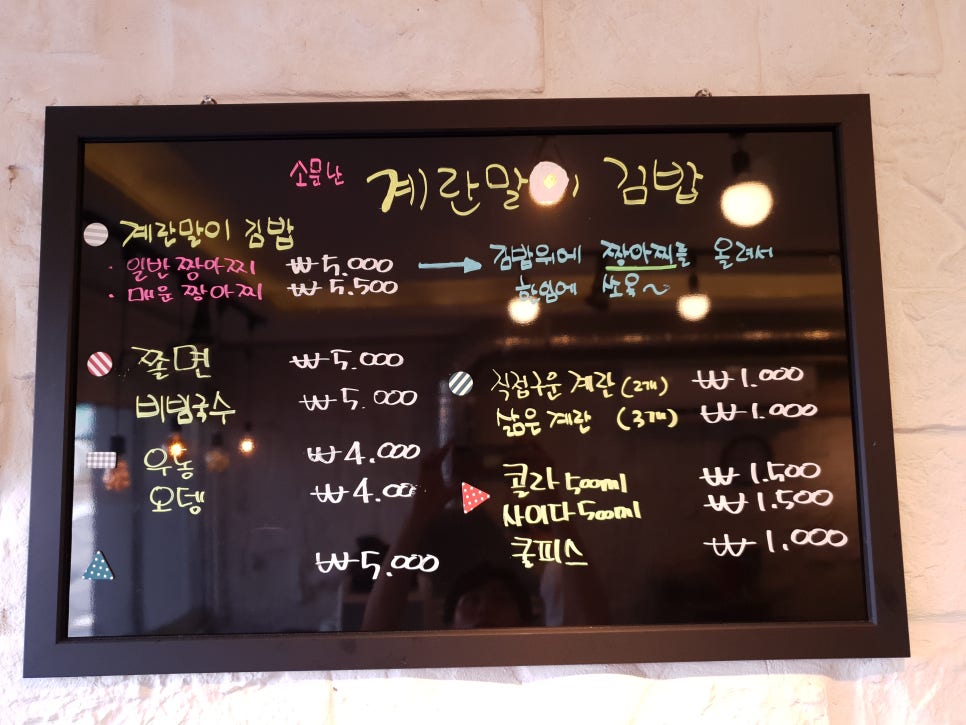 소문난 계란말이 김밥
계란말이 김밥
· 일반 짱아찌 ₩5,000
· 매운 짱아찌 ₩5,500
→ 김밥위에 짱아찌를 올려서
한입에 쏘옥~
쫄면 ₩5,000
비빔국수 ₩5,000
우동 ₩4,000
오뎅 ₩4,00
₩5,000
직접구운 계란 (2개) ₩1.000
삶은 계란 (3개) ₩1.000
콜라 500ml ₩1.500
사이다 500ml ₩1.500
쿨피스 ₩1.000